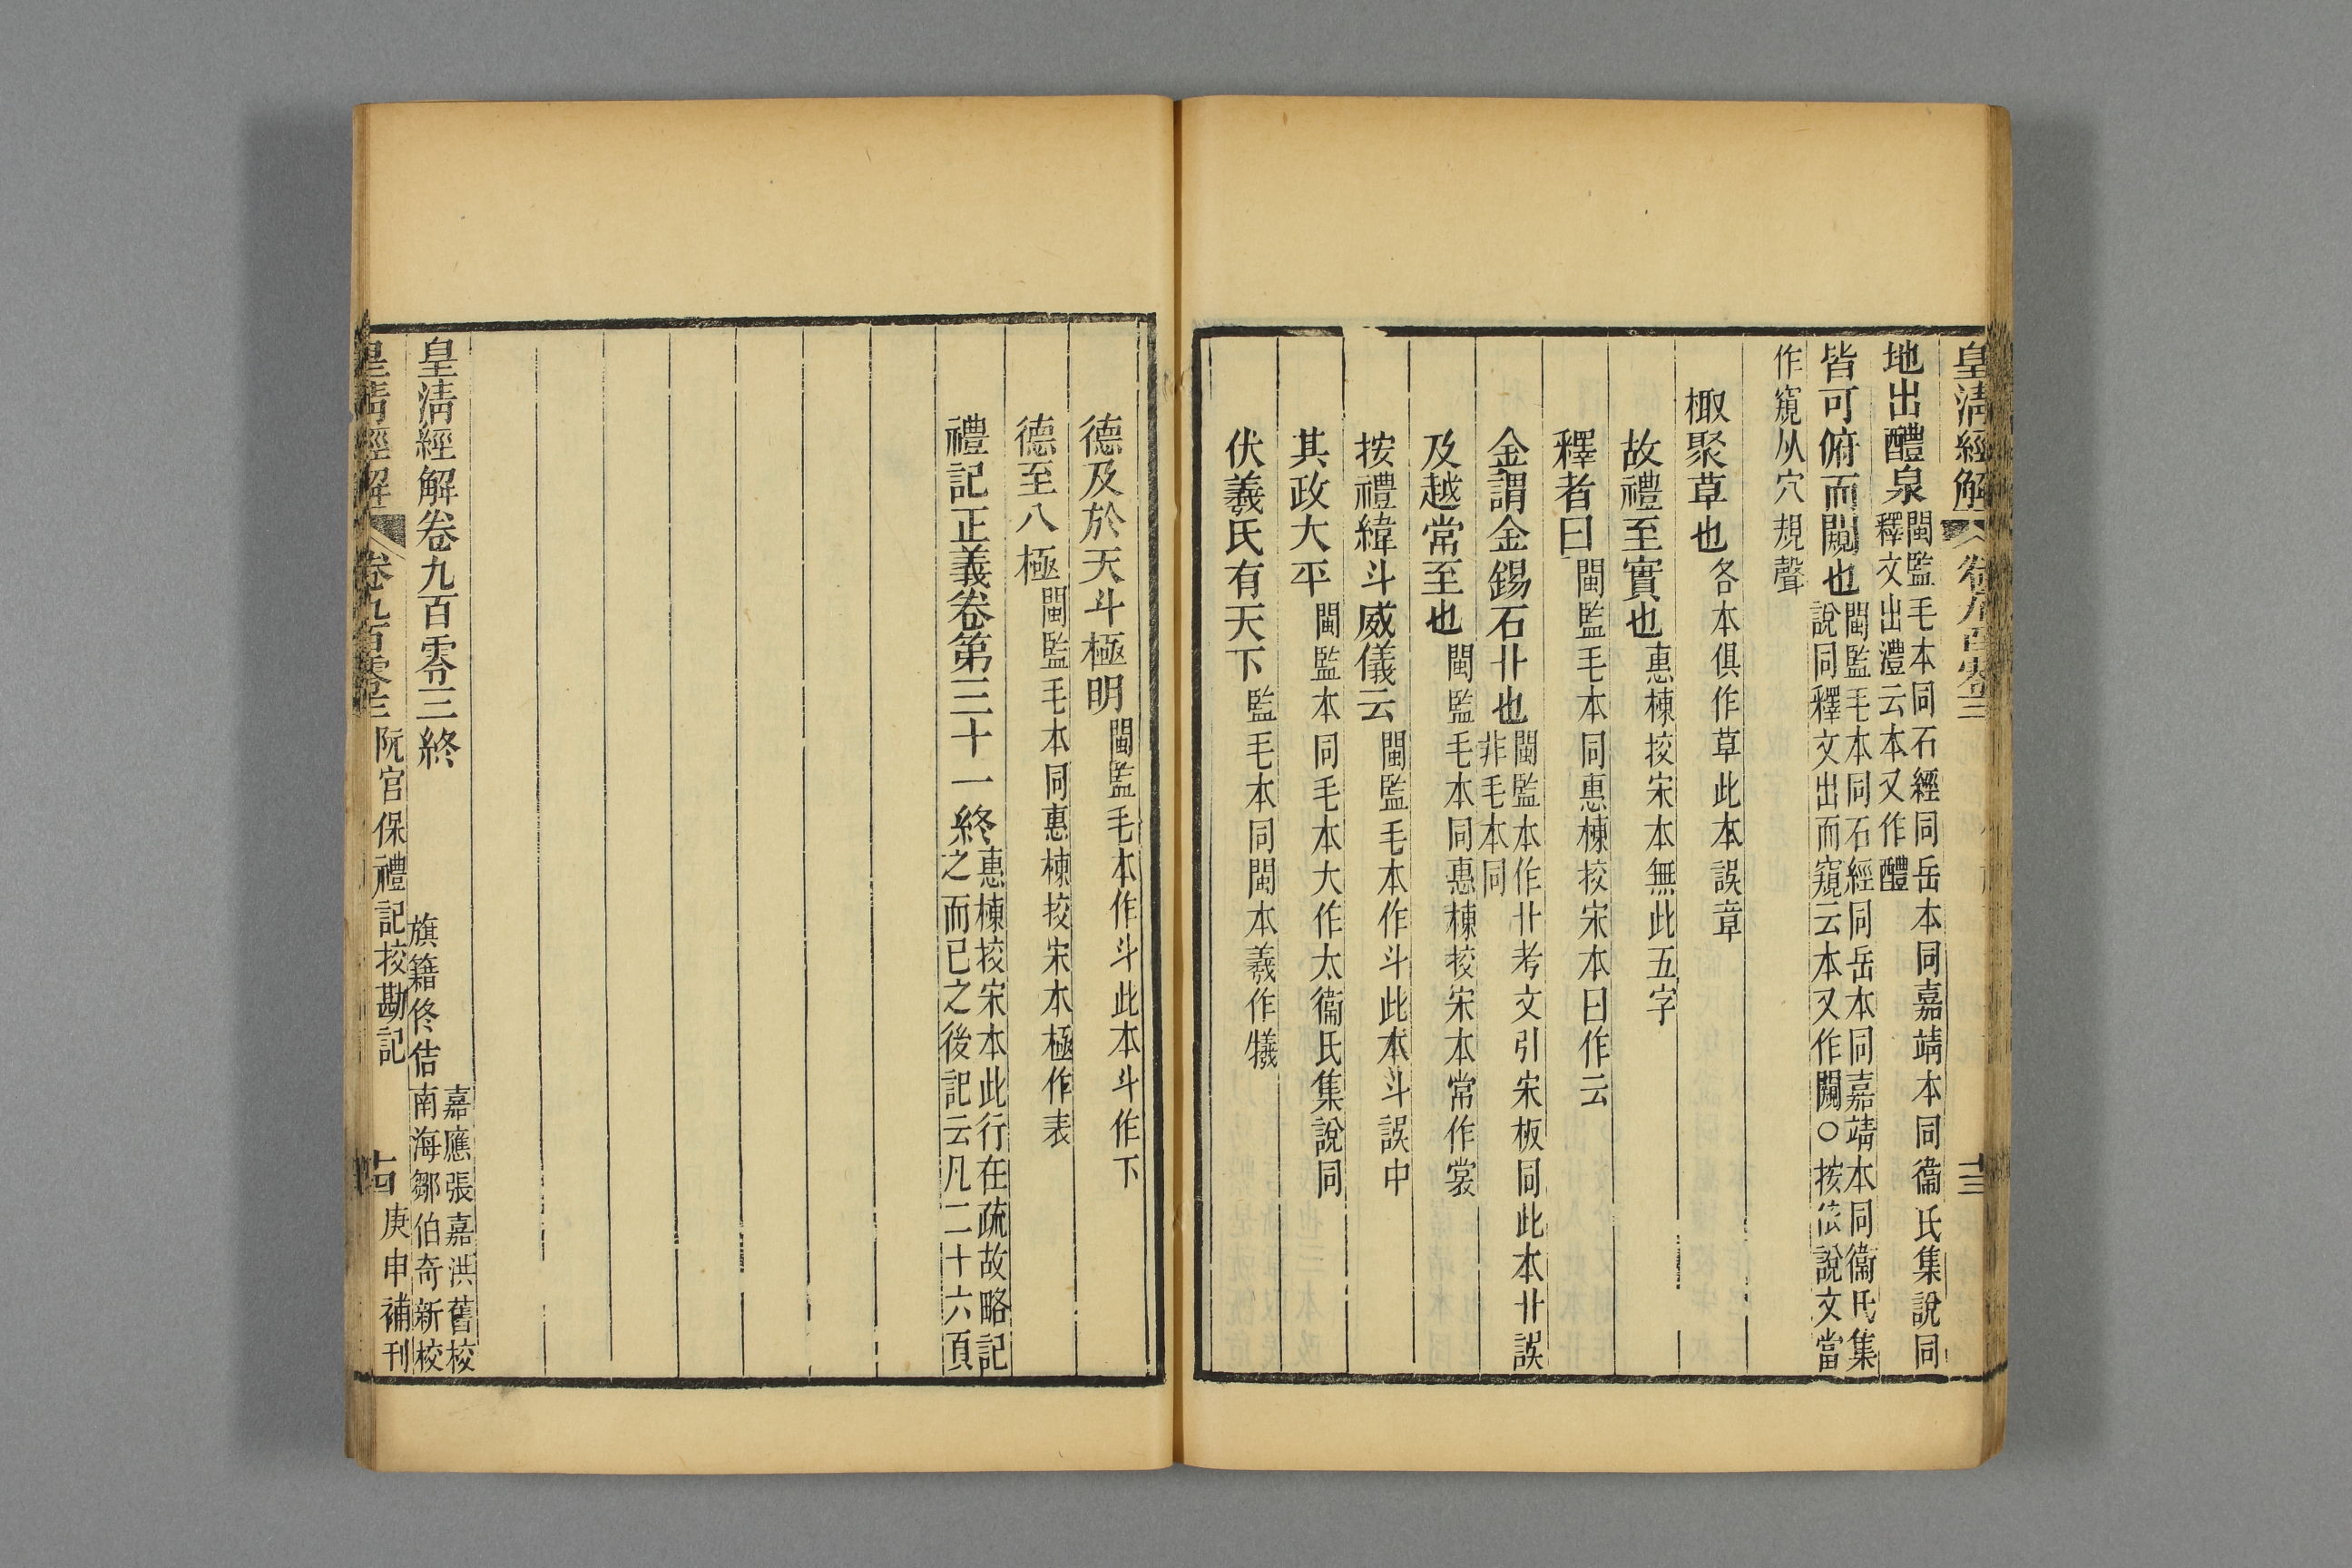 皇清經解 卷九百零三 十三
地出醴泉 閩監毛本同石經同岳本同嘉靖本同衞氏集說同
釋文出澧云本又作醴
皆可俯而闚也 閩監毛本同石經同岳本同嘉靖本同衞氏集
說同釋文出而窺云本又作闚○按依說文當
作窺从穴規聲
棷聚草也 各本俱作草此本誤章
故禮至實也 惠棟挍宋本無此五字
釋者曰 閩監毛本同惠棟挍宋本曰作云
金謂金錫石卝也 閩監本作卝考文引宋板同此本卝誤
非毛本同
及越常至也 閩監毛本同惠棟挍宋本常作裳
按禮緯斗威儀云 閩監毛本作斗此本斗誤中
其政大平 閩監本同毛本大作太衞氏集說同
伏羲氏有天下 監毛本同閩本羲作犧
德及於天斗極明 閩監毛本作斗此本斗作下
德至八極 閩監毛本同惠棟挍宋本極作表
禮記正義卷第三十一終 惠棟挍宋本此行在疏故略記
之而已之後記云凡二十六頁
皇清經解卷九百零三終
嘉應張嘉洪舊校
旗籍佟佶
南海鄒伯奇新校
皇清經解 卷九百零三 阮宮保禮記挍勘記 十四 庚申補刊